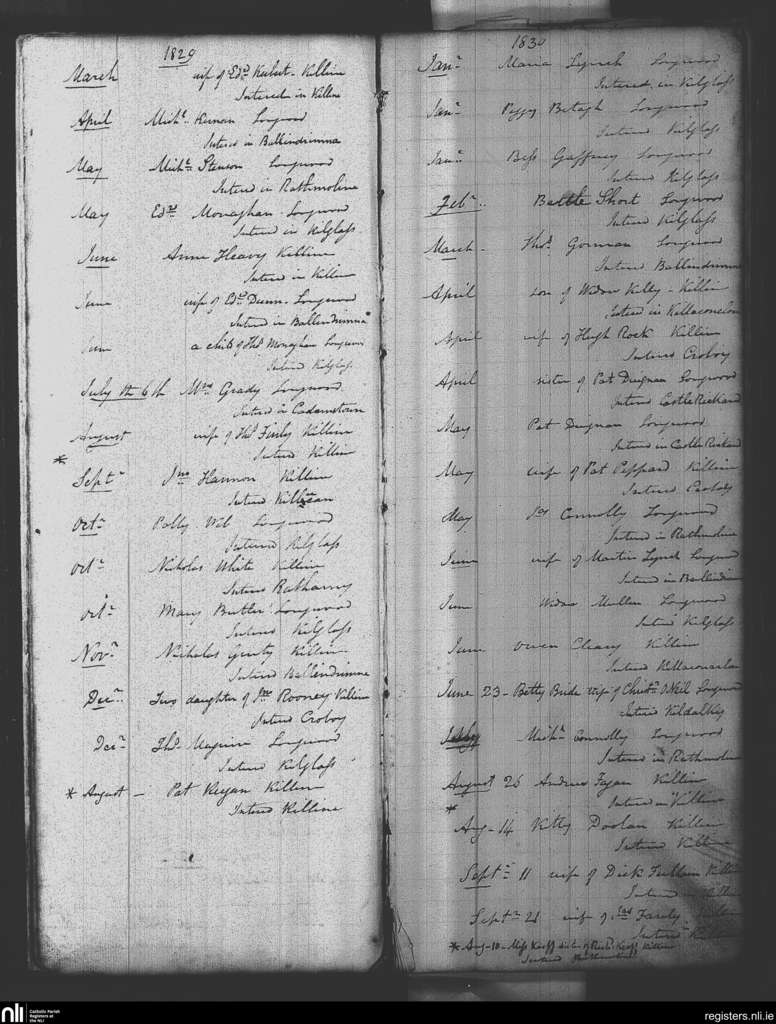 1829
March wife of Edd Killine
Interred in Killine
April Michl Kernan Longwood
Interred in Ballindrimna
May Michl Stenson Longwood
Interd in Rathmoline
May Edd Monaghan Longwood
Interred in Kilglass
June Anne Heavy Killine
Interd in Killine
June wife of Edd Dunn Longwood
Interd in Ballindrimna
June a child of Thos Monaghan Longwood
Interd Kilglass
July th 6th Mrs Grady Longwood
Interd in Cadamstown
August wife of Thos Finly Killine
Interd Killine
* Septr Jno Hannon Killine
Interd
Octr Polly Longwood
Interred Kilglass
Octr Nicholas White Killine
Interd
Octr Mary Butler Longwood
Interd Kilglass
Novr Nicholas Ginty Killine
Interd Ballindrimna
Decr Two daughter of Jno Rooney Killine
Interd Croboy
Decr Thos Maguire Longwood
Interd Kilglass
* August - Pat Keegan Killine
Interd Killine
1830
Janr Maria Lynch Longwood
Interred in Kilglass
Janr Peggy Betagh Longwood
Interd Kilglass
Janr Bess Gaffney Longwood
Interd Kilglass
Febr Short Longwood
Interd Kilglass
March Thos Gorman Longwood
Interd Ballindrimna
April son of Widow Kelly - Killine
Interd in
April wife of Hugh Rock Killine
Interd Croboy
April sister of Pat Duignan Longwood
Interd Castle Rickard
May Pat Duignan Longwood
Interd in Castle Rickard
May wife of Pat Peppard Killine
Interd Croboy
May Connolly Longwood
Interd in Rathmoline
June wife of Martin Lynch Longwood
Interd in
June Widow Mullen Longwood
Interd Kilglass
June Owen Cleary Killine
Interd
June 23 - Betty Bride wife of Christr O Neil Longwood
Interd Kildalkey
July Michl Connolly Longwood
Interd in Rathmoline
August 26 Andrew Fagan Killine
* Interd in Killine
Aug - 14 Kitty Doolan Killine
Interd Killine
Septr 11 wife of Dick Killine
Interd in
Septr 21 wife of Farily
Interd
* Aug - 10 - Miss Keeff sister of Revd Keeff Killine
Interd
nli
Catholic Parish
Registers at
the NLI
registers.nli.ie